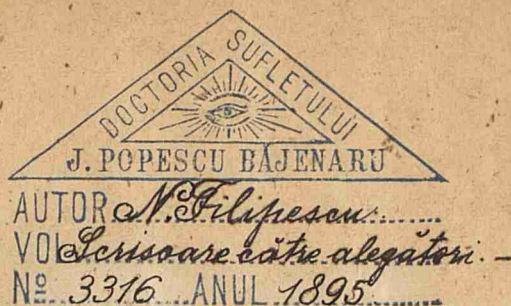 DOCTORIA SUFLETULUI
J. POPESCU BĂJENARU
AUTOR N. Filipescu.
VOL Scrisoare către alegători. –
Nº 3316 ANUL 1895